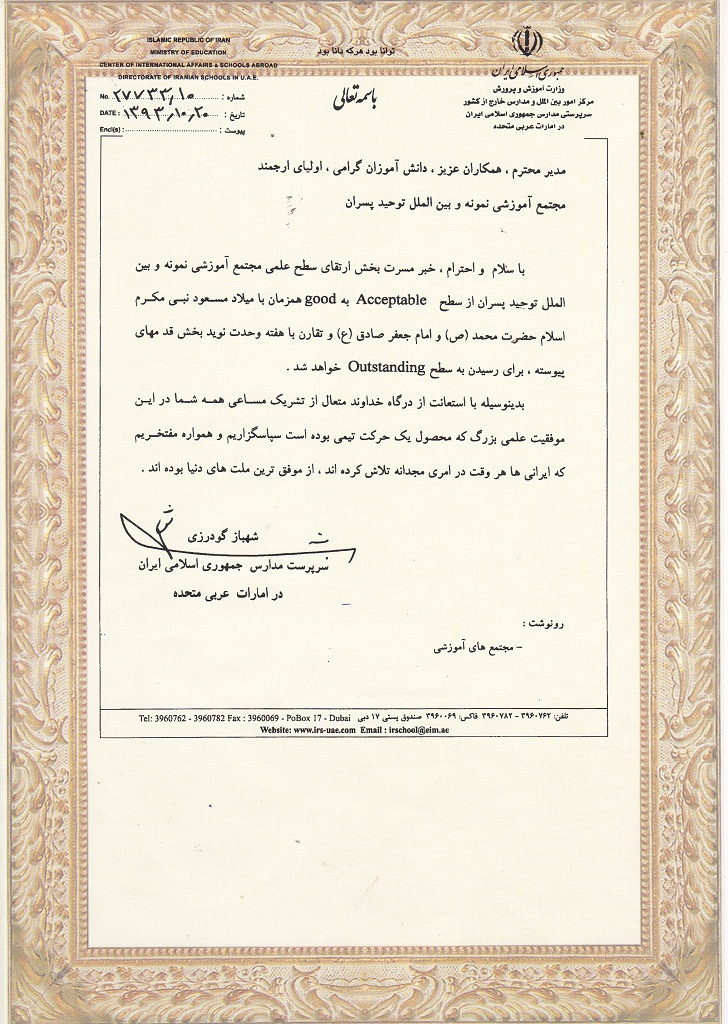 ISLAMIC REPUBLIC OF IRAN
MINISTRY OF EDUCATION
CENTER OF INTERNATIONAL AFFAIRS & SCHOOLS ABROAD
DIRECTORATE OF IRANIAN SCHOOLS IN U.A.E.
توانا بود هرکه دانا بود
جمهوری اسلامی ایران
وزارت آموزش و پرورش
مرکز امور بین الملل و مدارس خارج از کشور
سرپرستی مدارس جمهوری اسلامی ایران
در امارات عربی متحده
باسمه تعالی
No. ۲۷۷۳۳/۱۰ شماره :
DATE : ۱۳۹۳/۱۰/۲۰ تاریخ :
Encl(s) : پیوست :
مدیر محترم ، همکاران عزیز ، دانش آموزان گرامی ، اولیای ارجمند
مجتمع آموزشی نمونه و بین الملل توحید پسران
با سلام و احترام ، خبر مسرت بخش ارتقای سطح علمی مجتمع آموزشی نمونه و بین
الملل توحید پسران از سطح Acceptable به good همزمان با میلاد مسعود نبی مکرم
اسلام حضرت محمد (ص) و امام جعفر صادق (ع) و تقارن با هفته وحدت نوید بخش قد مهای
پیوسته ، برای رسیدن به سطح Outstanding خواهد شد .
بدینوسیله با استعانت از درگاه خداوند متعال از تشریک مساعی همه شما در این
موفقیت علمی بزرگ که محصول یک حرکت تیمی بوده است سپاسگزاریم و همواره مفتخریم
که ایرانی ها هر وقت در امری مجدانه تلاش کرده اند ، از موفق ترین ملت های دنیا بوده اند .
شهباز گودرزی
سرپرست مدارس جمهوری اسلامی ایران
در امارات عربی متحده
رونوشت :
- مجتمع های آموزشی
تلفن: ۳۹۶۰۷۶۲ - ۳۹۶۰۷۸۲ فاکس: ۳۹۶۰۰۶۹ صندوق پستی ۱۷ دبی Tel: 3960762 - 3960782 Fax : 3960069 - PoBox 17 - Dubai
Website: www.irs-uae.com Email : irschool@eim.ae